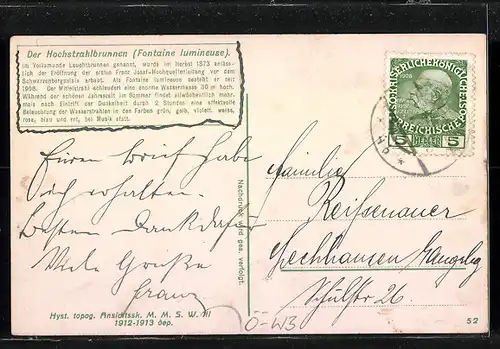 Der Hochstrahlbrunnen (Fontaine lumineuse).
Im Volksmunde Leuchtbrunnen genannt, wurde im Herbst 1873 anläss-
lich der Eröffnung der ersten Franz Josef-Hochquellenleitung vor dem
Schwarzenbergpalais erbaut. Als Fontaine lumineuse besteht er seit
1906. Der Mittelstrahl schleudert eine enorme Wassermasse 30 m hoch.
Während der schönen Jahreszeit im Sommer findet allwöchentlich mehr-
mals nach Eintritt der Dunkelheit durch 2 Stunden eine effektvolle
Beleuchtung der Wasserstrahlen in den Farben grün, gelb, violett, weiss,
rose, blau und rot, bei Musik statt.
1908
5 HELLER 5
Euren Brief habe
ich erhalten.
Besten Dank dafür
Viele Grüße
Franz
Nachdruck wird ges. verfolgt.
Familie
Reifsenauer
Sechshausen
Schulstr 26.
Hyst. topog. Ansichtssk. M. M. S. W. III
1912-1913 dep.
Ö-W3
52